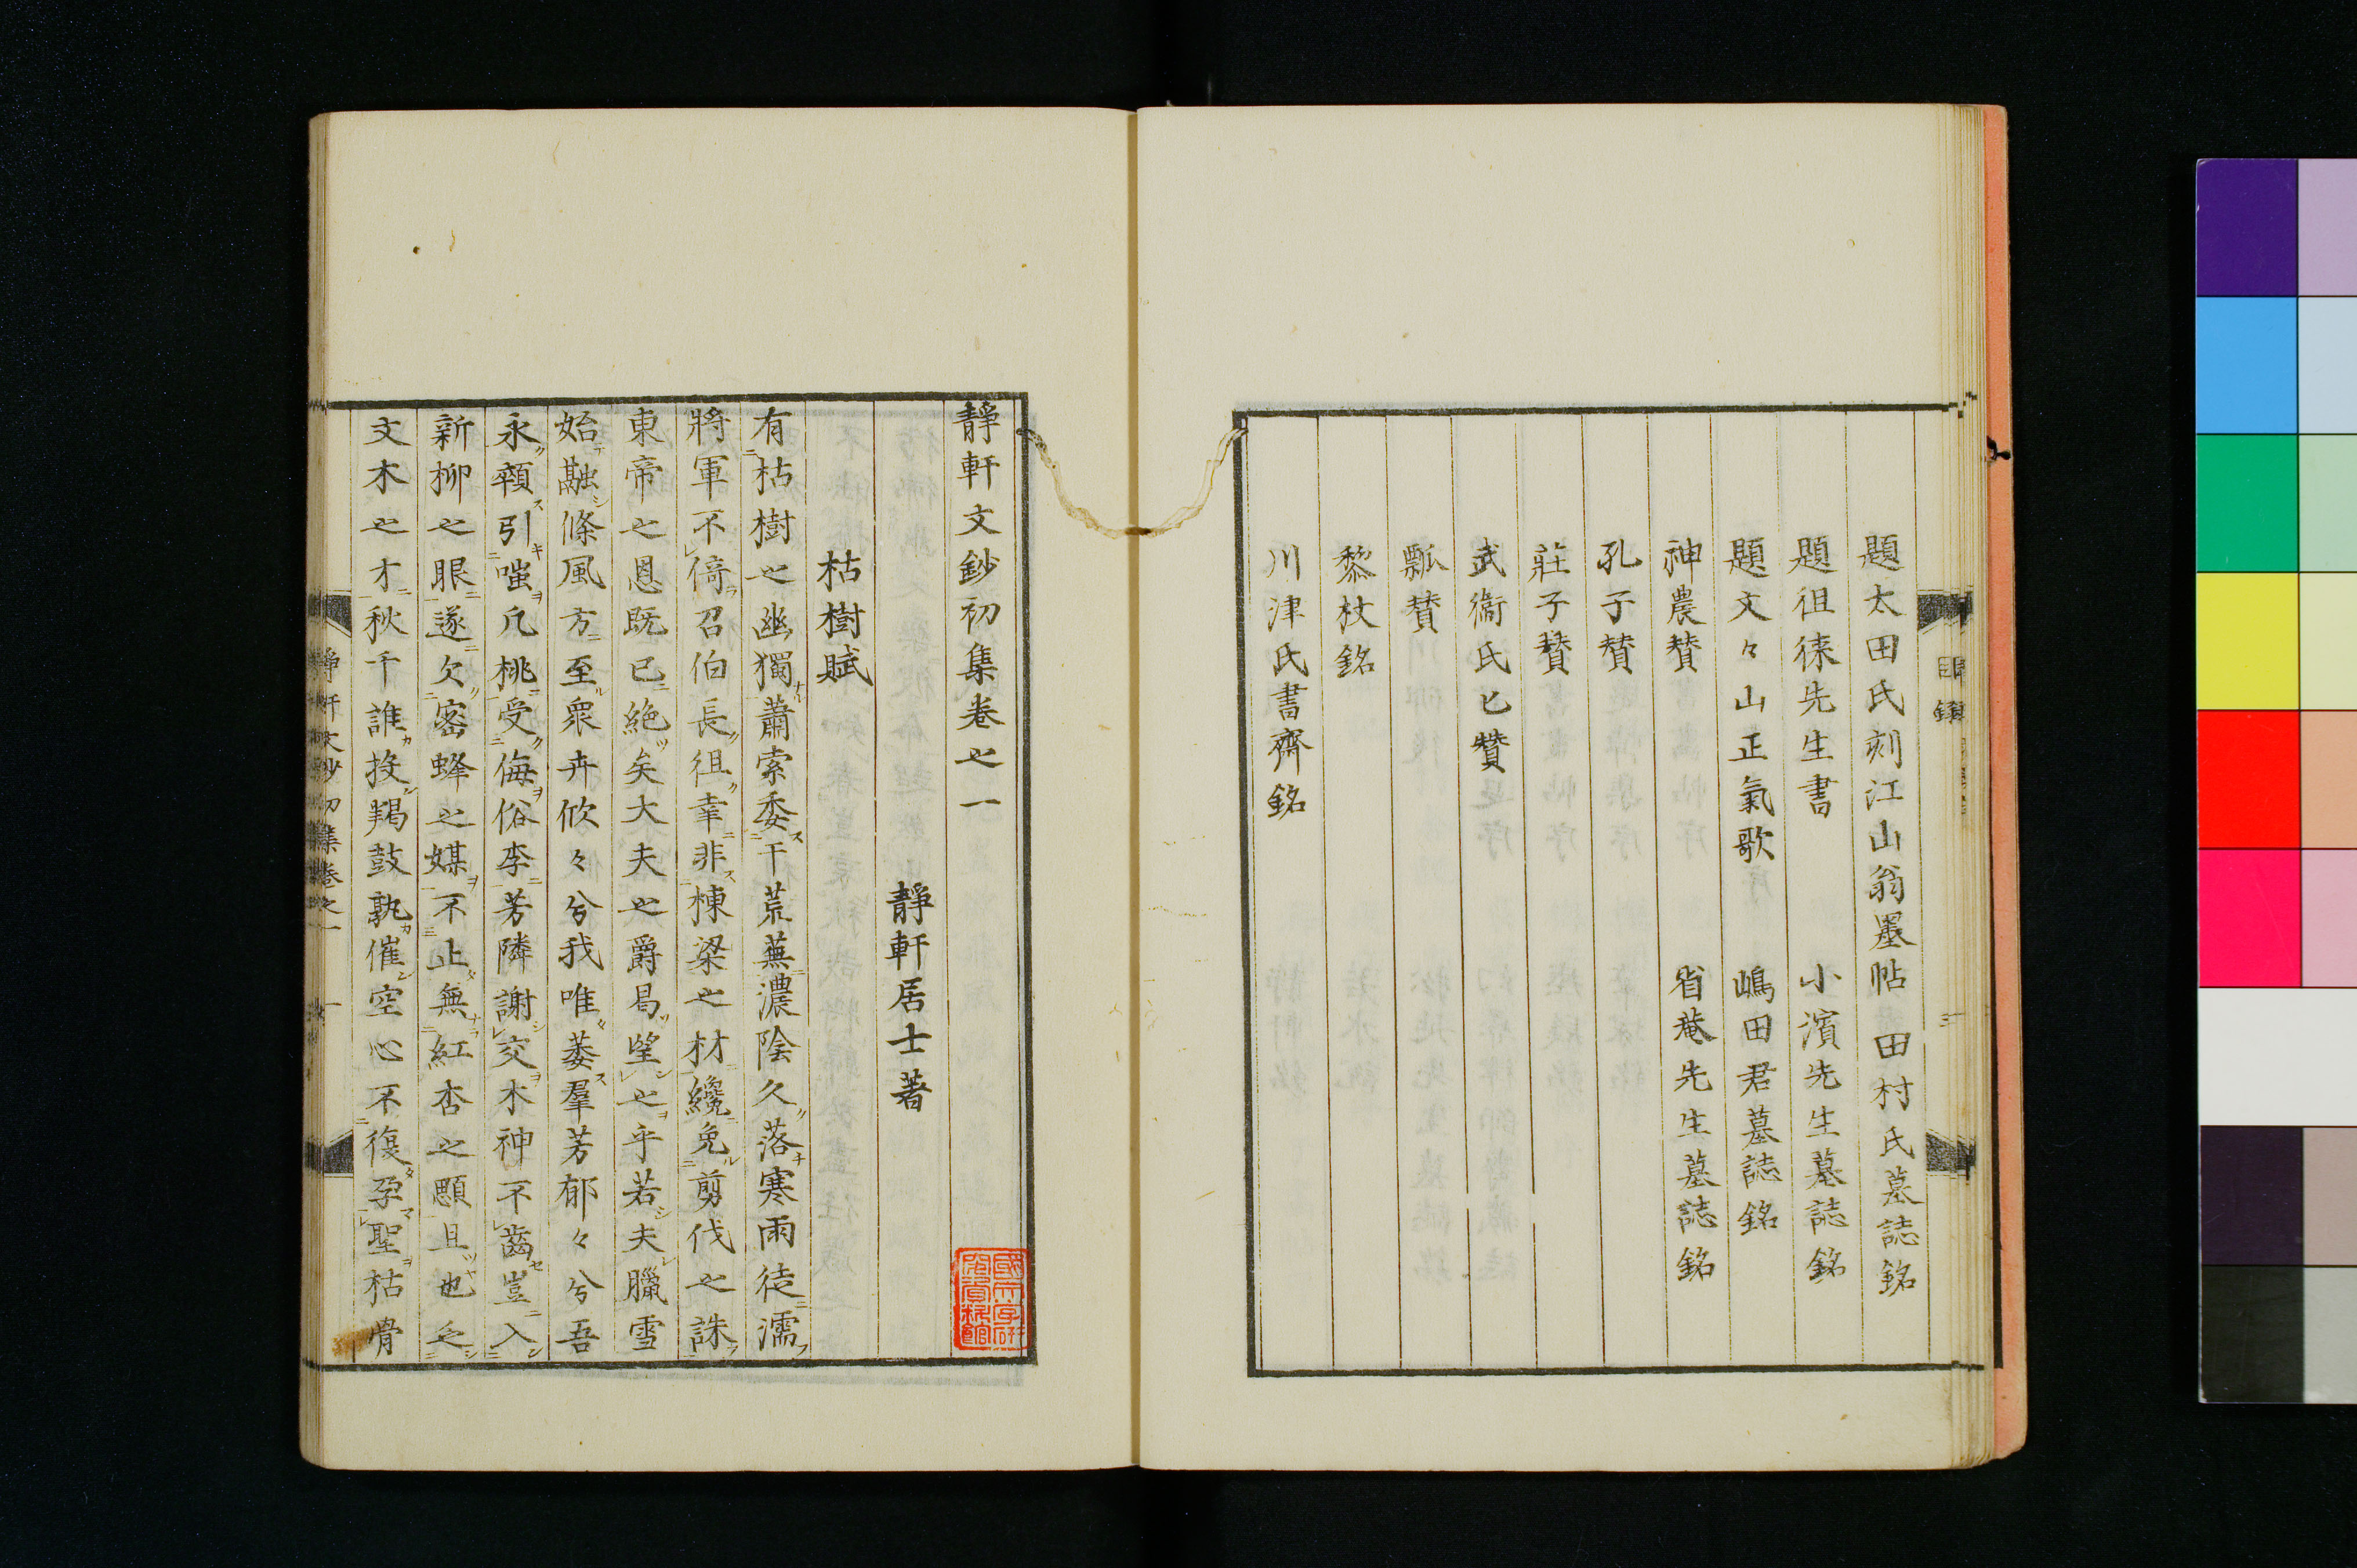 題太田氏刻江山翁墨帖 田村氏墓誌銘
題徂徠先生書 小濱先生墓誌銘
題文々山正氣歌 嶋田君墓誌銘
神農賛 省菴先生墓誌銘
孔子賛
莊子賛
武衞氏匕賛
瓢賛
黎杖銘
川津氏書齋銘
靜軒文鈔初集卷之一
靜軒居士著
枯樹賦
有枯樹之幽獨蕭索委干荒蕪濃陰久落寒雨徒濡
將軍不倚召伯長徂幸非棟梁之材纔免剪伐之誅
東帝之恩既已絶矣大夫之爵曷望之乎若夫臘雪
始融條風方至衆卉攸々兮我唯萎羣芳郁々兮吾
永顇引嗤凡桃受侮俗李芳隣謝交木神不齒豈入
新柳之眼遂欠密蜂之媒不止無紅杏之顋且也乏
文木之才秋千誰投羯鼓孰催空心不復孕聖枯骨
靜軒文鈔初集卷之一 一
國文學研究資料館